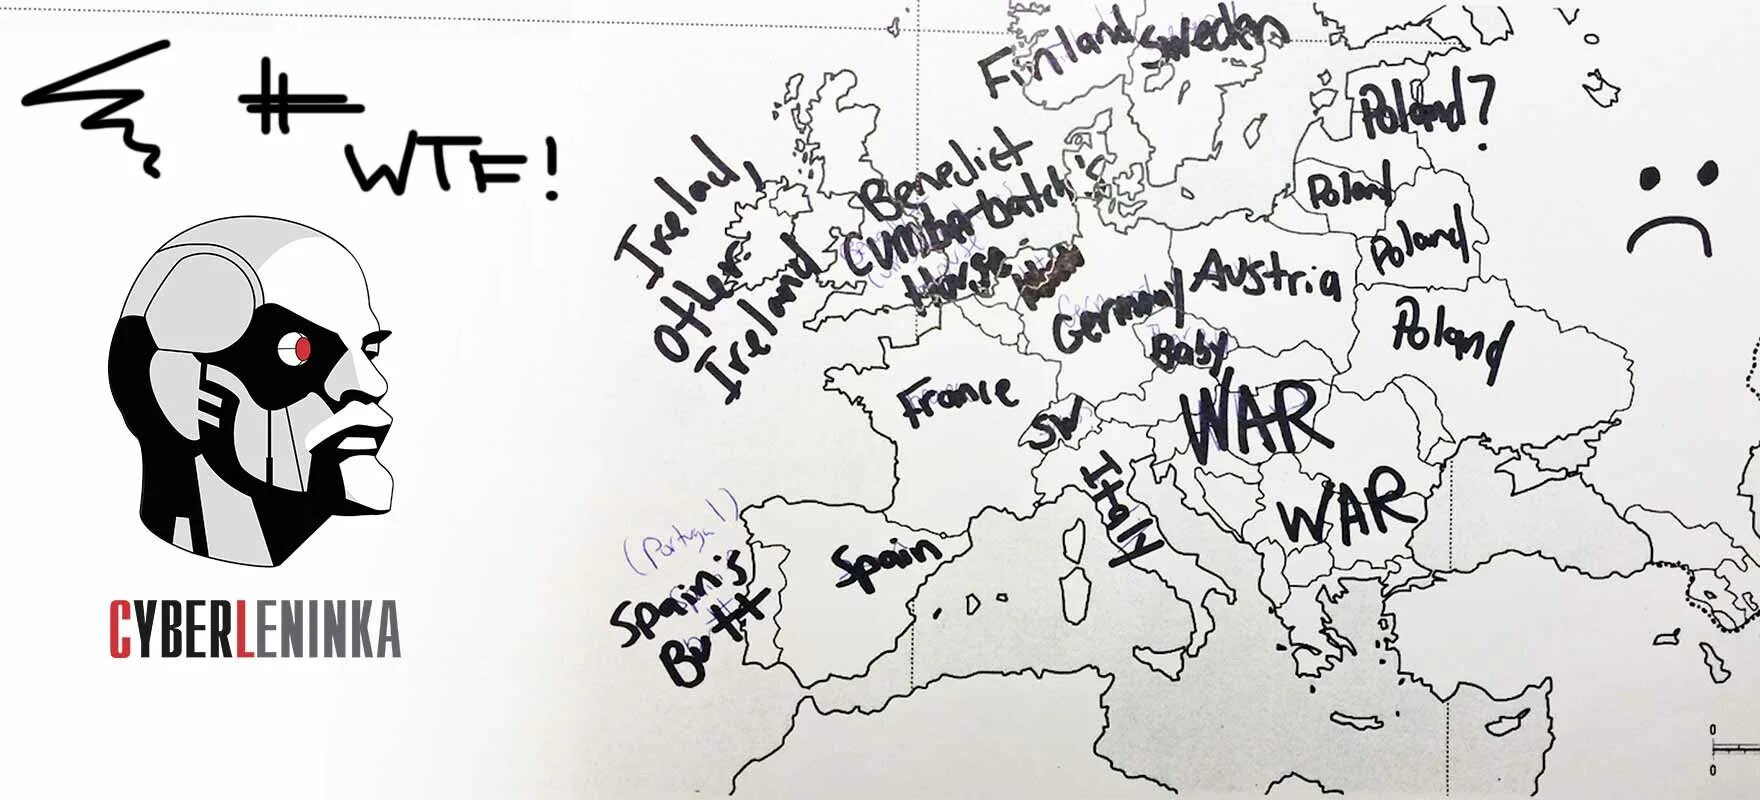 WTF!
CYBERLENINKA
Finland
Sweden
Poland?
Irelad,
Other
Ireland
Benedict
Cumba-batch's
House
Poland
Poland
Austria
Germany
Baby
Poland
France
SW
WAR
Italy
WAR
(Portugal)
Spain's
Butt
Spain
0
0